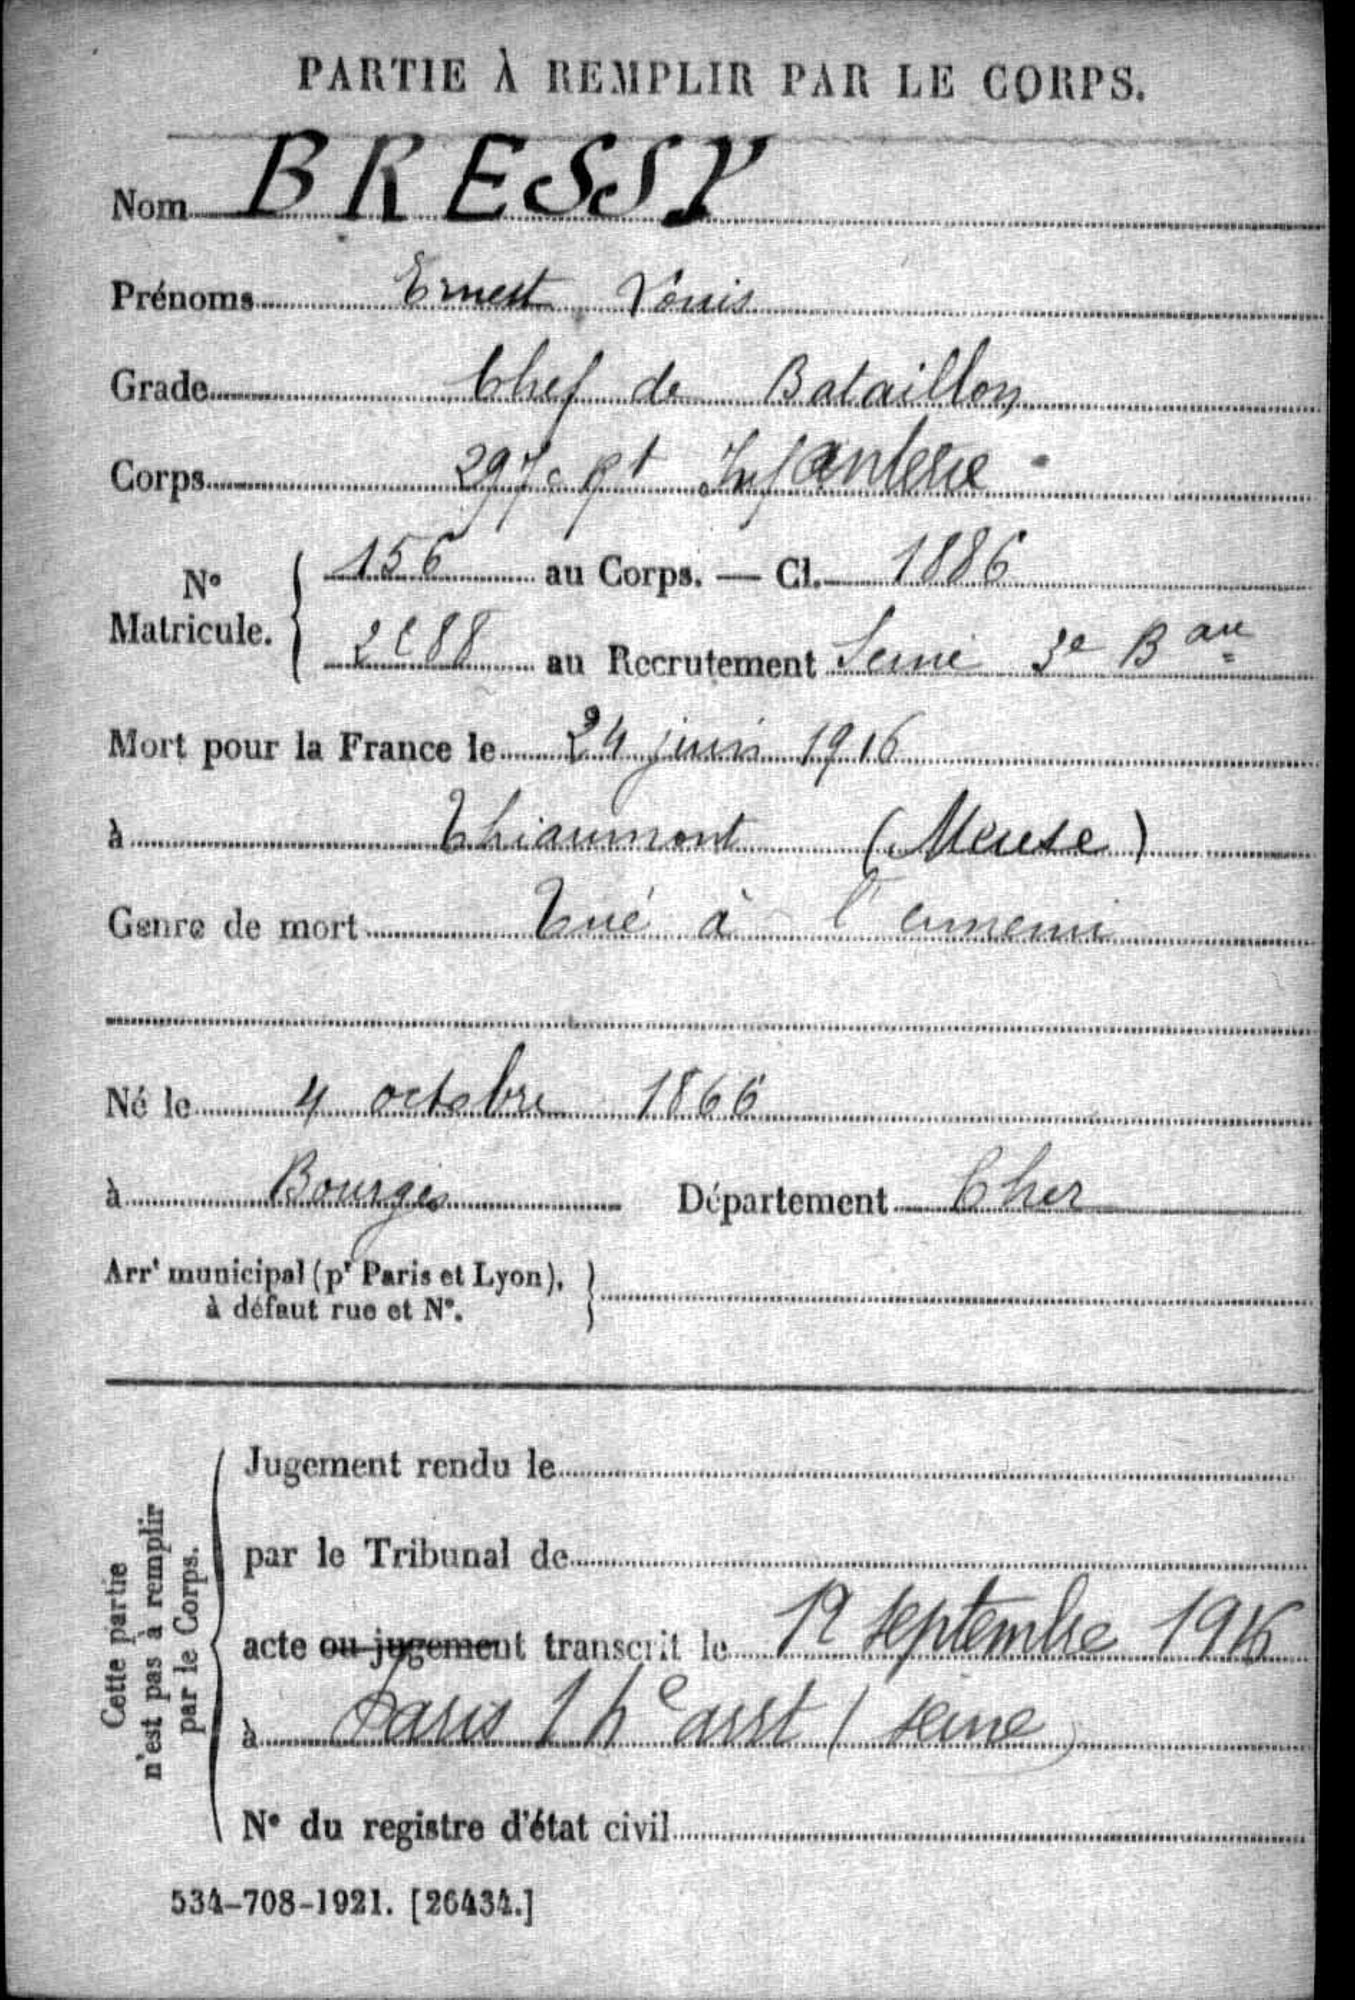 PARTIE À REMPLIR PAR LE CORPS.
Nom BRESSY
Prénoms Ernest Louis
Grade Chef de Bataillon
Corps 297e Rt Infanterie
N° Matricule. { 156 au Corps. — Cl. 1886
au Recrutement Seine 3e Bau
Mort pour la France le 24 juin 1916
à Thiaumont (Meuse)
Genre de mort Tué à l'ennemi
Né le 4 octobre 1866
à Bourges Département Cher
Arrt municipal (pr Paris et Lyon),
à défaut rue et N°.
Cette partie
n'est pas à remplir
par le Corps.
Jugement rendu le
par le Tribunal de
acte ou jugement transcrit le septembre 1916
à Paris arrt (Seine)
N° du registre d'état civil
534-708-1921. [26434.]